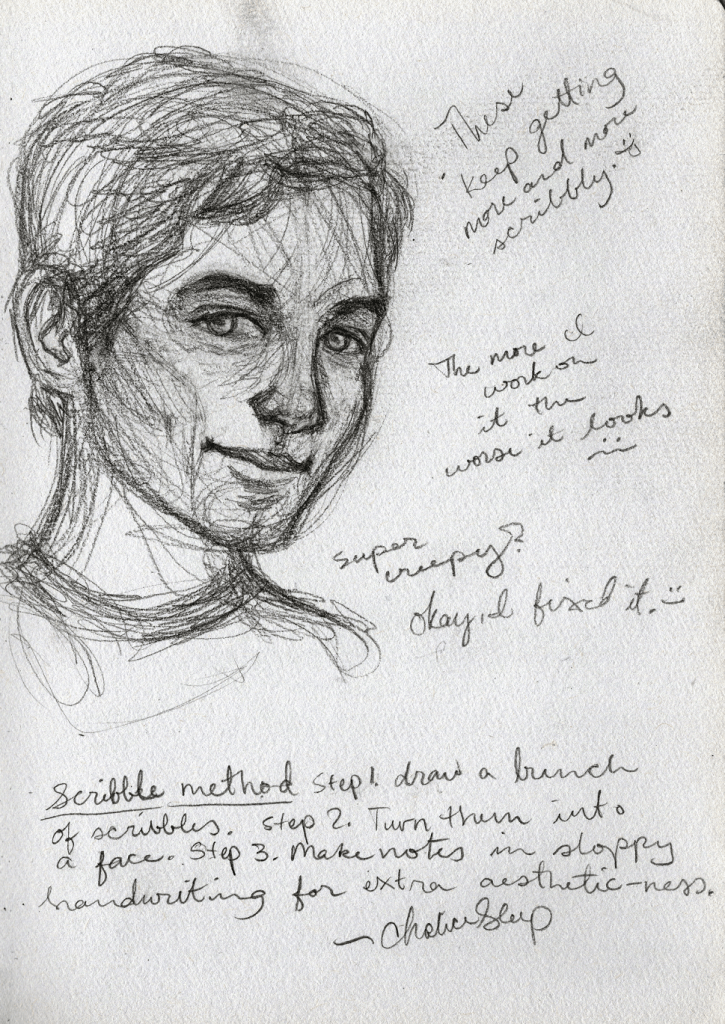 These
keep getting
more and more
scribbly. :)
The more I
work on
it the
worse it looks
:|
super
creepy?
okay, I fixed it. :)
Scribble method Step 1. draw a bunch
of scribbles. Step 2. Turn them into
a face. Step 3. Make notes in sloppy
handwriting for extra aesthetic-ness.